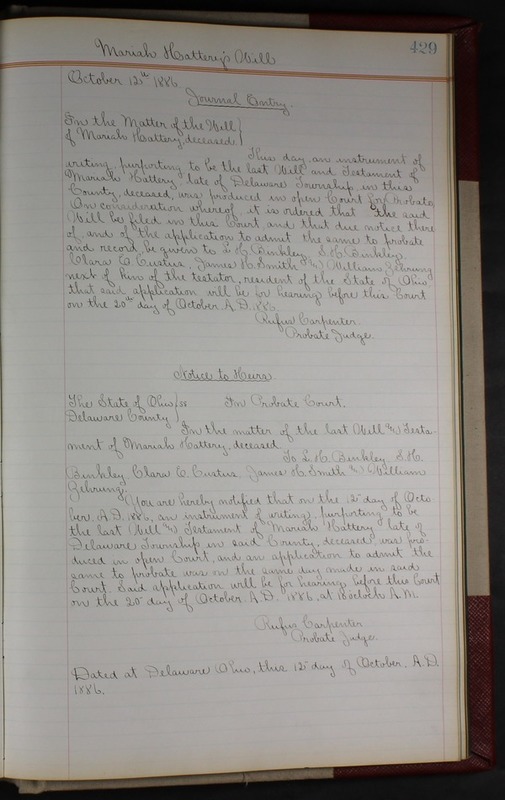 429
Mariah Hattery's Will
October 12th 1886.
Journal Entry.
In the Matter of the Will }
of Mariah Hattery, deceased }
This day, an instrument of
writing, purporting to be the last Will and Testament of
Mariah Hattery late of Delaware Township in this
County, deceased, was produced in open Court for Probate
On consideration whereof, it is ordered that the said
Will be filed in this Court and that due notice there
of and of the application to admit the same to probate
and record be given to L. H. Binkley, S. H. Binkley,
Clara E. Custus, James H. Smith & William Gehrung
next of kin of the testator, resident of the State of Ohio
that said application will be for hearing before this Court
on the 20th day of October A.D. 1886
Rufus Carpenter
Probate Judge.
Notice to Heirs
The State of Ohio } ss In Probate Court.
Delaware County }
In the matter of the last Will & Testa-
ment of Mariah Hattery, deceased
To L. H. Binkley, S. H.
Binkley, Clara E. Custus, James H. Smith & William
Gehrung;
You are hereby notified that on the 12" day of Octo-
ber. A.D. 1886, an instrument of writing, purporting to be
the last Will & Testament of Mariah Hattery late of
Delaware Township in said County, deceased, was pro-
duced in open Court, and an application to admit the
same to probate was on the same day made in said
Court. Said application will be for hearing before this Court
on the 20" day of October. A.D. 1886, at 10 oclock A.M.
Rufus Carpenter
Probate Judge.
Dated at Delaware Ohio, this 12" day of October. A.D.
1886.